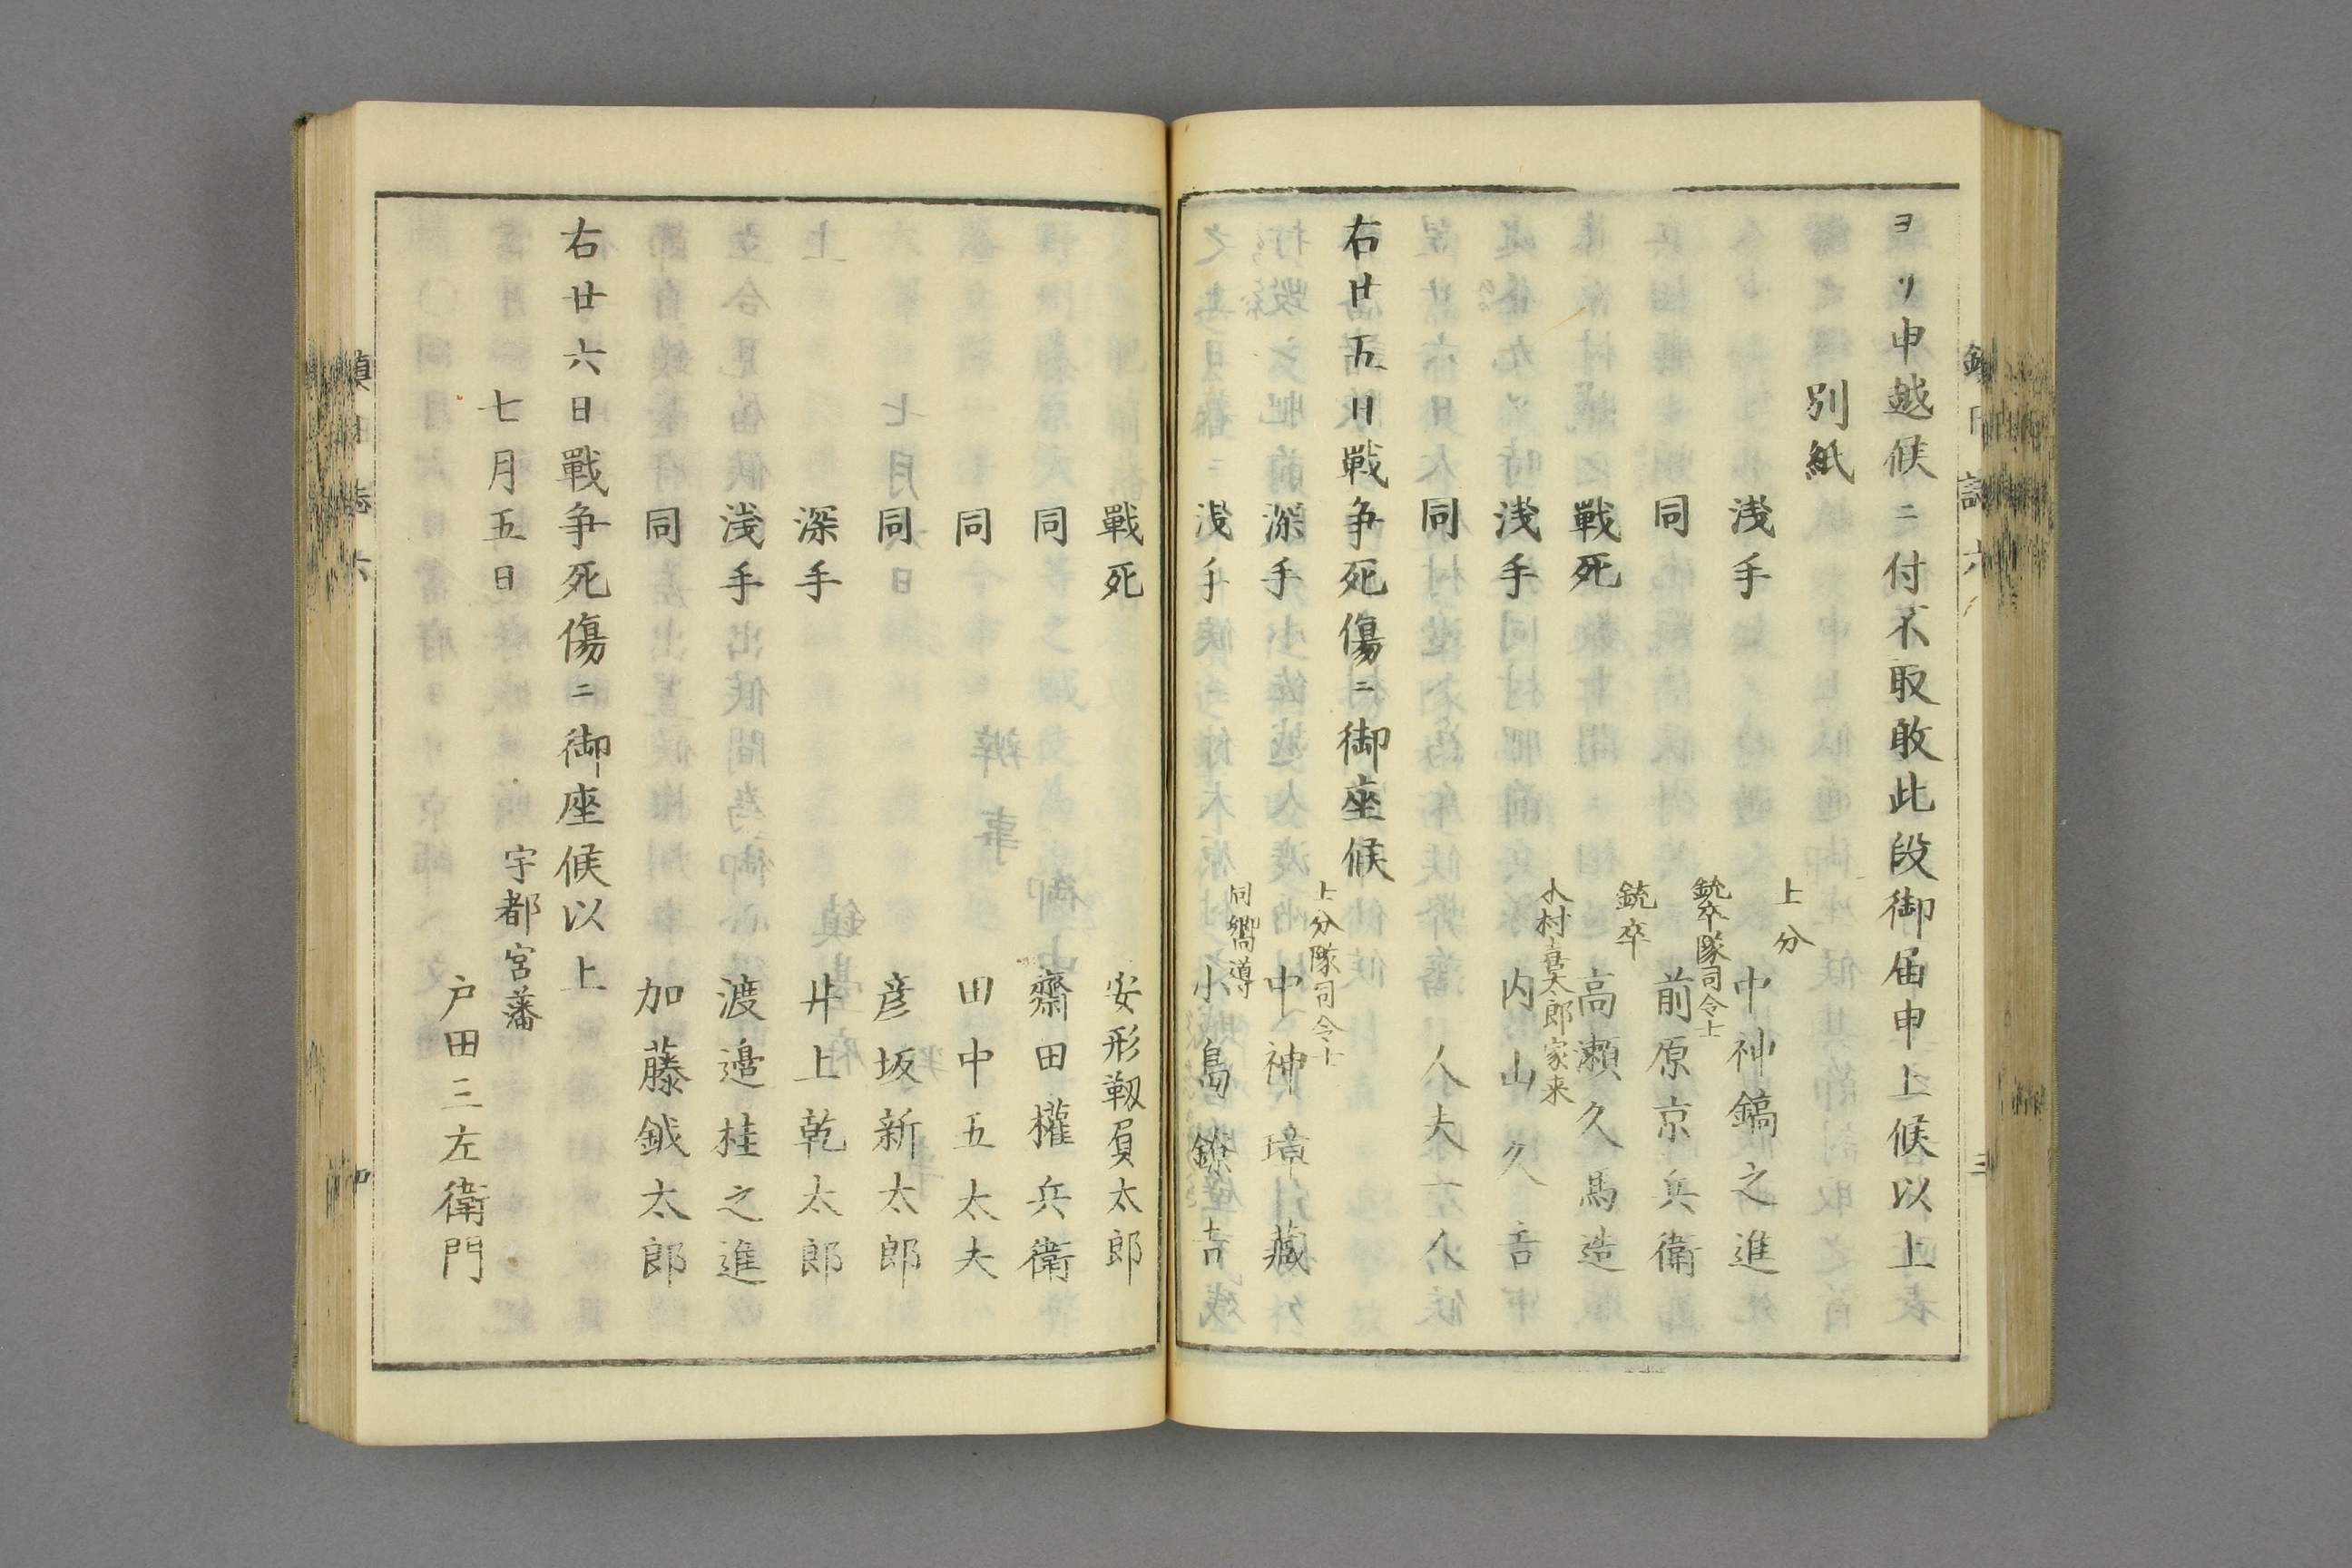 ヨリ申越候ニ付不取敢此段御届申上候以上
別紙
上分
浅手 中神鎬之進
銃卒隊司令士
同 前原京兵衛
銃卒
戦死 高瀬久馬造
木村喜太郎家来
浅手 内山久吉
同 人夫 人
右廿五日戦争死傷ニ御座候
上分隊司令士
深手 中神璋藏
同嚮導
浅手 小島鐐吉
戰死 安形靱負太郎
同 齋田權兵衛
同 田中五太夫
同 彦坂新太郎
深手 井上乾太郎
浅手 渡邉桂之進
同 加藤鉞太郎
右廿六日戰争死傷ニ御座候以上
七月五日
宇都宮藩
戸田三左衛門